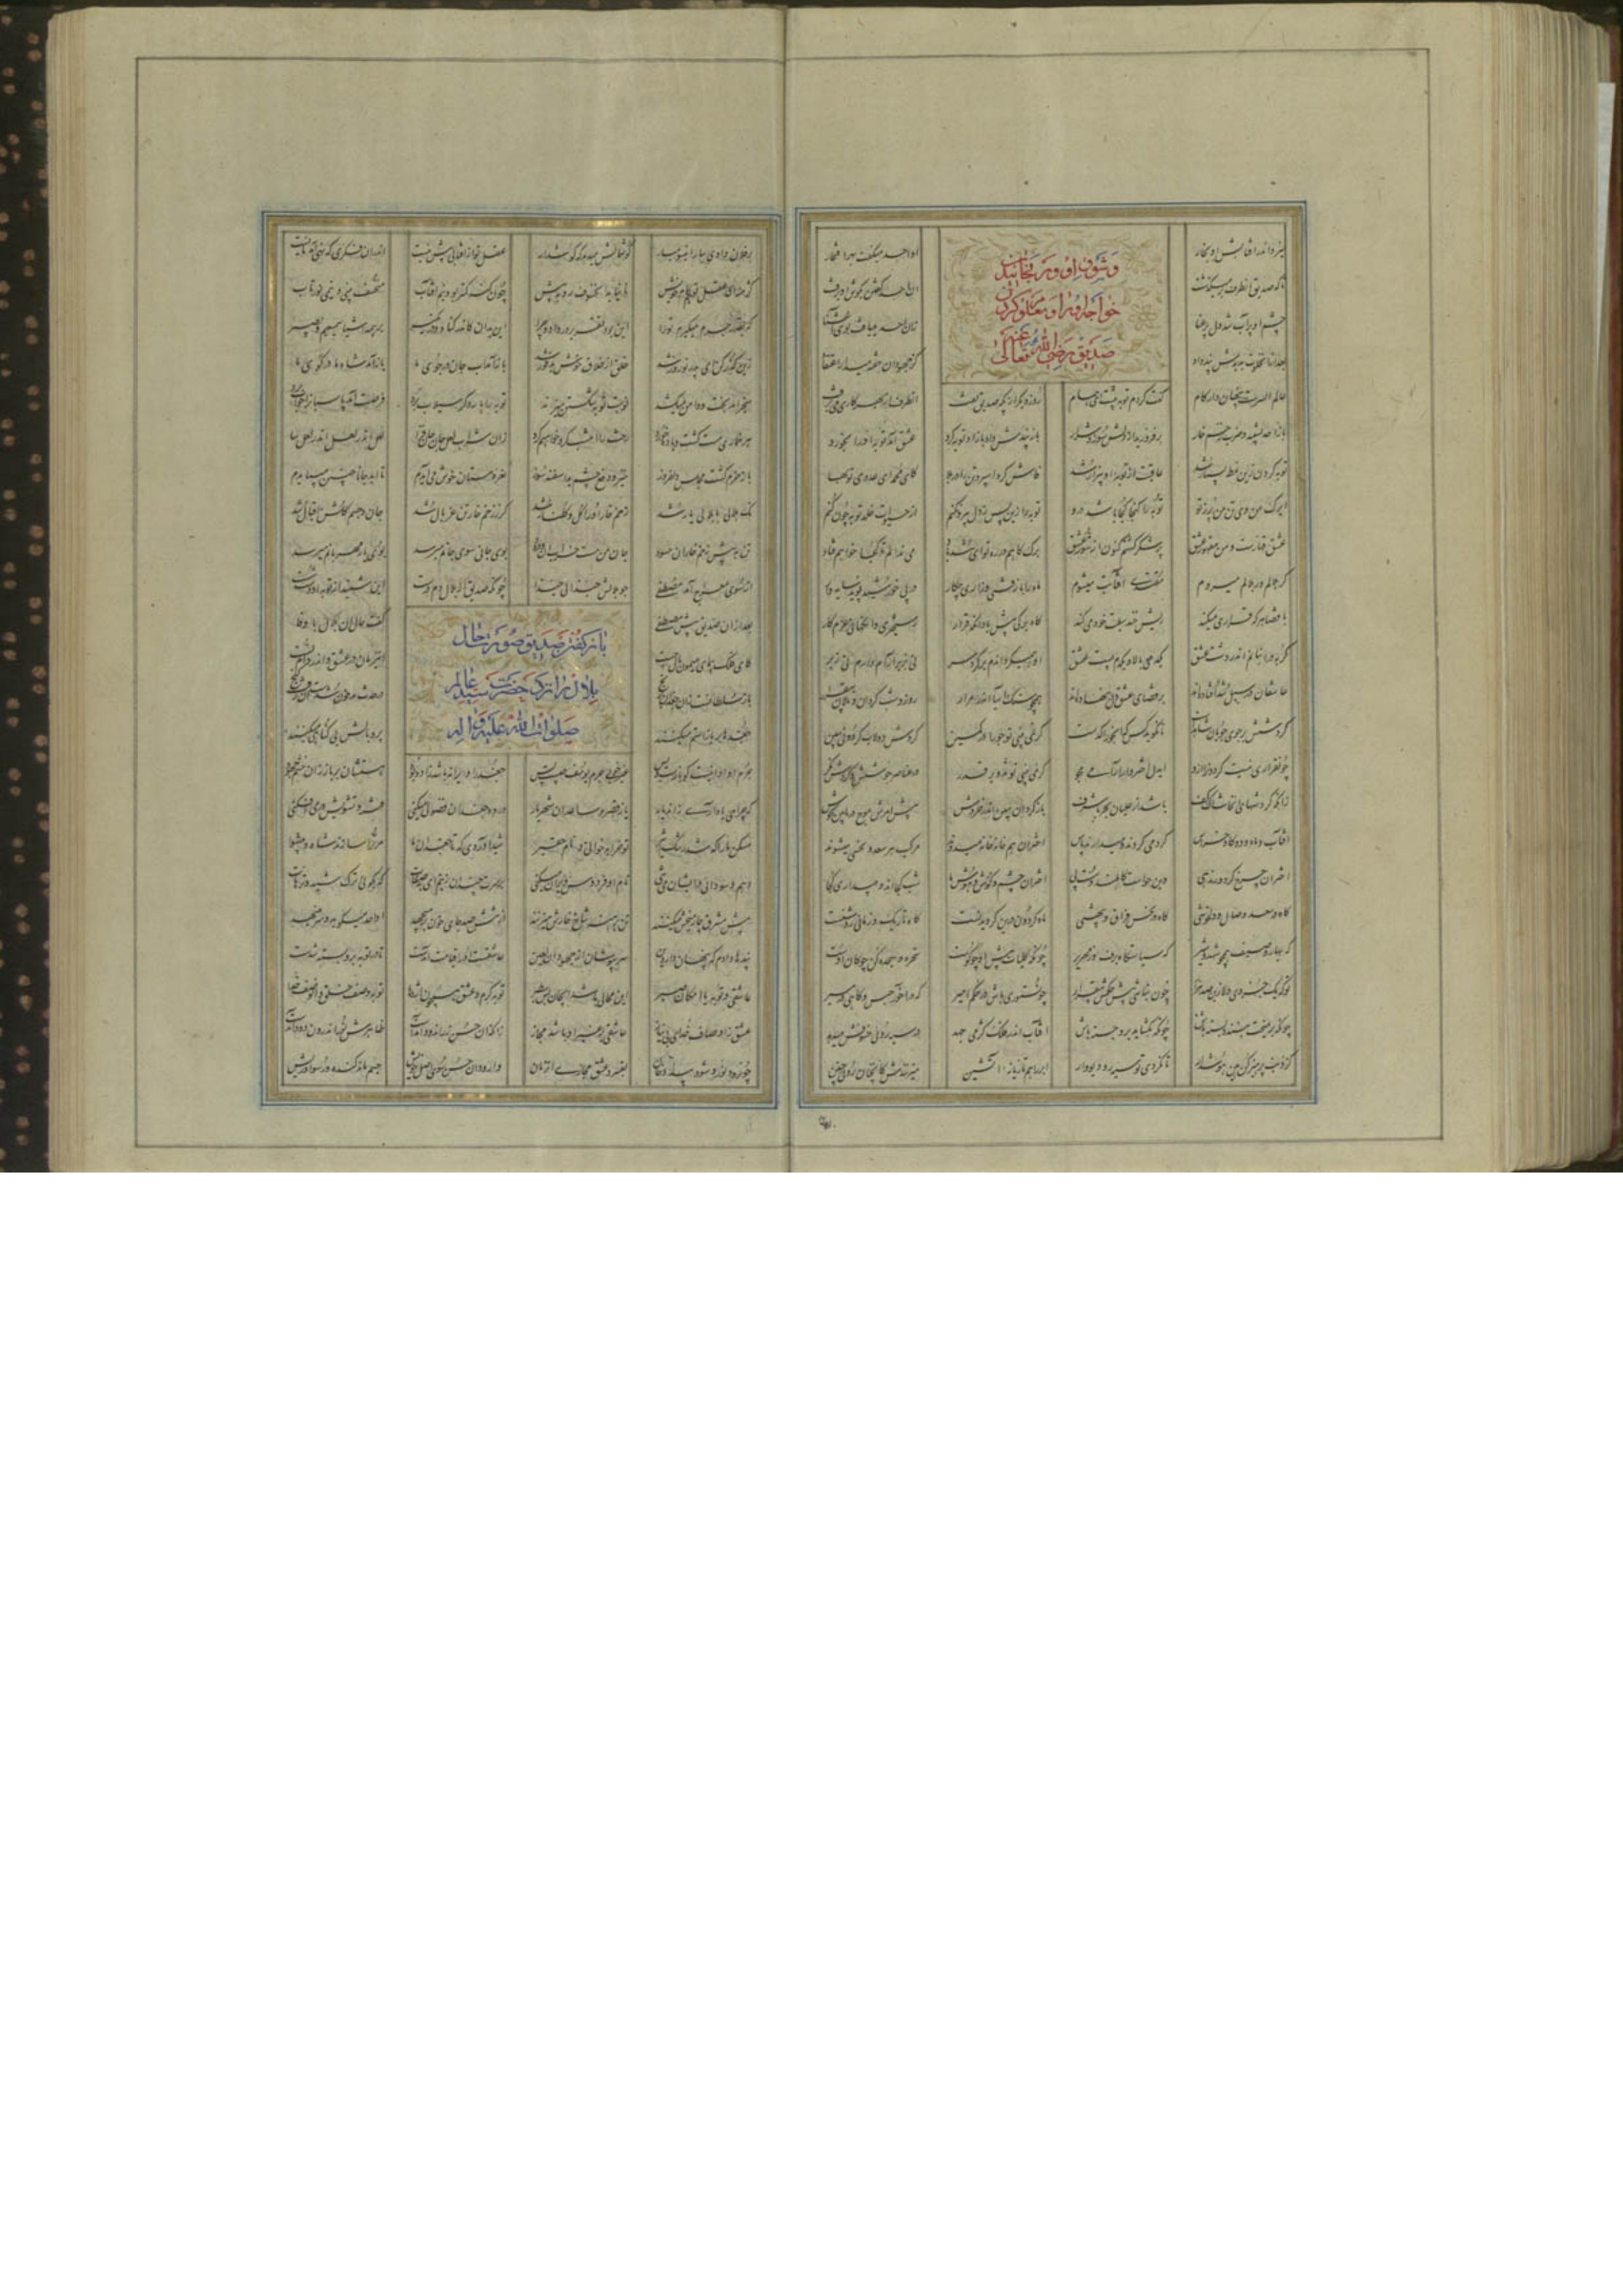 میزد اندر آفتابش او بخار
او احد میگفت بهر افتخار
تا که صدیق آن طرف بر میگذشت
آن احد گفتن بگوش او برفت
چشم او پر آب شد دل پر عنا
زان احد مییافت بوی آشنا
بعد از آن خلوت بدیدش پند داد
کز جهودان خفیه میدار اعتقاد
خواجه او را و معلوم کردن
صدیق رضی الله تعالی عنه
عالم السرست پنهان دار کام
گفت کردم توبه پیشت ای همام
روز دیگر از پگه صدیق تفت
آن طرف از بهر کاری می برفت
باز احد بشنید و ضرب زخم خار
برفروزید از دلش سوز و شرار
باز پندش داد باز او توبه کرد
عشق آمد توبه او را بخورد
توبه کردن زین نمط بسیار شد
عاقبت از توبه او بیزار شد
فاش کرد اسپرد تن را در بلا
کای محمد ای عدوی توبها
ای رگ من وی تن من پر ز تو
توبه را گنجا کجا باشد درو
توبه را زین پس ز دل بیرون کنم
از حیات خلد توبه چون کنم
عشق قهارست و من مقهور عشق
پر شکر گشتم کنون از شور عشق
برگ کاهم
خواهم فتاد
مقتدی آفتابت میشوم
ماه را با زفتی و زاری چکار
در پی خورشید پوید سایه وار
با قضا هر کو قراری میکند
ریش خند سبلت خود میکند
کاه برگی پیش باد آنگه قرار
رستخیزی وانگهانی عزم کار
گربه در انبانم اندر دست عشق
یکدمی بالا و یکدم پست عشق
او همی گرداندم بر گرد سر
نی بزیر آرام دارم نی زبر
عاشقان در سیل تند افتاده اند
بر قضای عشق دل بنهاده اند
همچو سنگ آسیا اندر مدار
روز و شب گردان و نالان بیقرار
گردشش بر جوی جویان شاهدست
تا نگوید کس که آن جو راکدست
گر نمی بینی تو جو را در کمین
گردش دولاب گردونی ببین
چون قراری نیست گردون را ازو
ای دل اختروار آرامی مجو
گر نمی بینی تو تدویر قدر
در عناصر جوشش و گردش نگر
زانکه گردشهای آن خاشاک و کف
باشد از غلیان بحر با شرف
باد سرگردان ببین اندر خروش
پیش امرش موج دریا بین بجوش
آفتاب و ماه دو گاو خراس
گرد می گردند و میدارند پاس
اختران هم خانه خانه میدوند
مرکب هر سعد و نحسی میشوند
اختران چرخ گر دورند هی
وین حواست کاهلند و سست پی
اختران چشم و گوش و هوش ما
شب کجااند و ببیداری کجا
گاه در سعد و وصال و دلخوشی
گاه در نحس و فراق و بیهشی
ماه گردون چون درین گردیدنست
گاه تاریک و زمانی روشنست
گه بهار و صیف همچو شهد و شیر
گه سیاستگاه برف و زمهریر
چونکه کلیات پیش او چو گوست
سخره و سجده کن چوگان اوست
تو که یک جزوی دلا زین صد هزار
چون نباشی پیش حکمش بیقرار
چون ستوری باش در حکم امیر
گه در آخور حبس و گاهی در مسیر
چونکه بر میخت ببندد بسته باش
چونکه بگشاید برو برجسته باش
آفتاب اندر فلک کژ می جهد
در سیه رویی خسوفش میدهد
کز ذنب پرهیز کن هین هوش دار
تا نگردی تو سیه رو دیگ وار
ابر را هم تازیانه آتشین
میزنندش کانچنان رو نی چنین
بر فلان وادی ببار این سو مبار
گوشمالش میدهد که گوش دار
عقل تو از آفتابی بیش نیست
اندر آن فکری که نهی آمد مایست
کژ منه ای عقل تو هم گام خویش
تا نیاید آن خسوف رو بپیش
چون گنه کمتر بود نیم آفتاب
منکسف بینی و نیمی نورتاب
که بقدر جرم میگیرم ترا
این بود تقریر در داد و جزا
بر همه اشیا سمیعیم و بصیر
زین گذر کن ای پدر نوروز شد
خلق از خلاق خوش پدفوز شد
باز آمد آب جان در جوی ما
باز آمد شاه ما در کوی ما
میخرامد بخت و دامن میکشد
نوبت توبه شکستن میزند
توبه را بار دگر سیلاب برد
فرصت آمد پاسبان را خواب برد
هر خماری مست گشت و باده خورد
رخت را امشب گرو خواهیم کرد
زان شراب لعل جان جان فزا
لعل اندر لعل اندر لعل ما
باز خرم گشت مجلس دلفروز
خیز دفع چشم بد اسفند سوز
نعره مستان خوش می آیدم
تا ابد جانا چنین می بایدم
نک هلالی با بلالی یار شد
زخم خار او را گل و گلنار شد
گر ز زخم خار تن غربال شد
جان و جسمم گلشن اقبال شد
تن به پیش زخم خار آن جهود
جان من مست و خراب آن ودود
بوی جانی سوی جانم میرسد
بوی یار مهربانم میرسد
از سوی معراج آمد مصطفی
بر بلالش حبذا لی حبذا
چونکه صدیق از بلال دم درست
این شنید از توبه او دست شست
باز گفتن صدیق صورت حال
بلال را نزد حضرت سید عالم
صلوات الله علیه و آله
بعد از آن صدیق پیش مصطفی
گفت حال آن بلال با وفا
کان فلک پیمای میمون بال چست
این زمان در عشق و اندر دام تست
باز سلطانست زان جغدان برنج
در حدث مدفون شدست آن زفت گنج
جغدها بر باز استم میکنند
پر و بالش بی گناهی میکنند
جرم او اینست کو بازست و بس
غیر خوبی جرم یوسف چیست پس
جغد را ویرانه باشد زاد و بود
هستشان بر باز زان خشم جهود
که چرا می یاد آری زان دیار
یا ز قصر و ساعد آن شهریار
در ده جغدان فضولی میکنی
فتنه و تشویش در می افکنی
مسکن ما را که شد رشک اثیر
تو خرابه خوانی و نام حقیر
شید آوردی که تا جغدان ما
مر ترا سازند شاه و پیشوا
وهم و سودایی در ایشان می تنی
نام این فردوس ویران میکنی
بر سرت چندان زنیم ای بدصفات
که بگویی ترک شید و ترهات
پیش مشرق چارمیخش میکنند
تن برهنه شاخ خارش میزنند
از تنش صد جای خون بر میجهد
او احد میگوید و سر مینهد
پندها دادم که پنهان دار دین
سر بپوشان از جهودان لعین
عاشقست او را قیامت آمدست
تا در توبه برو بسته شدست
عاشقی و توبه یا امکان صبر
این محالی باشد ای جان بس سطبر
توبه کرم و عشق همچون اژدها
توبه وصف خلق و آن وصف خدا
عشق ز اوصاف خدای بی نیاز
عاشقی بر غیر او باشد مجاز
زانکه آن حسن زراندود آمدست
ظاهرش نور اندرون دود آمدست
چون رود نور و شود پیدا دخان
بفسرد عشق مجازی آن زمان
وا رود آن حسن سوی اصل
جسم ماند گنده و رسوا